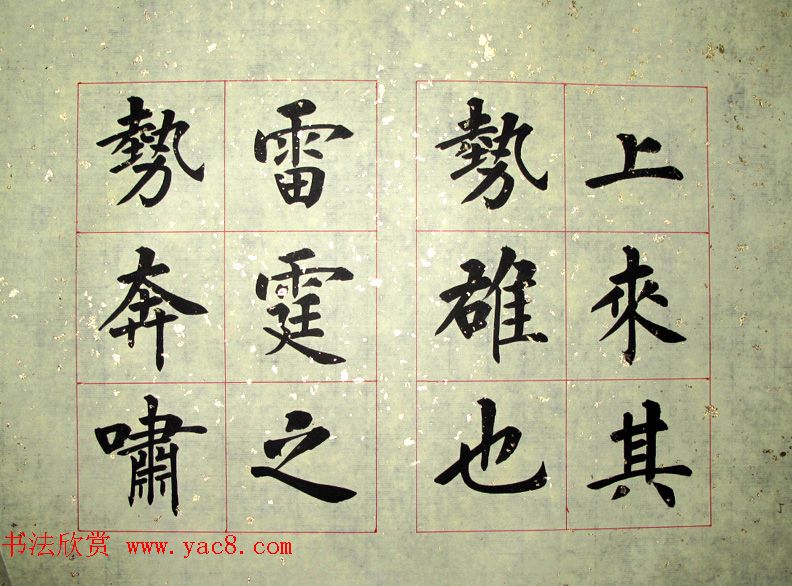 上來其
勢雄也
雷霆之
勢奔嘯
书法欣赏 www.yac8.com